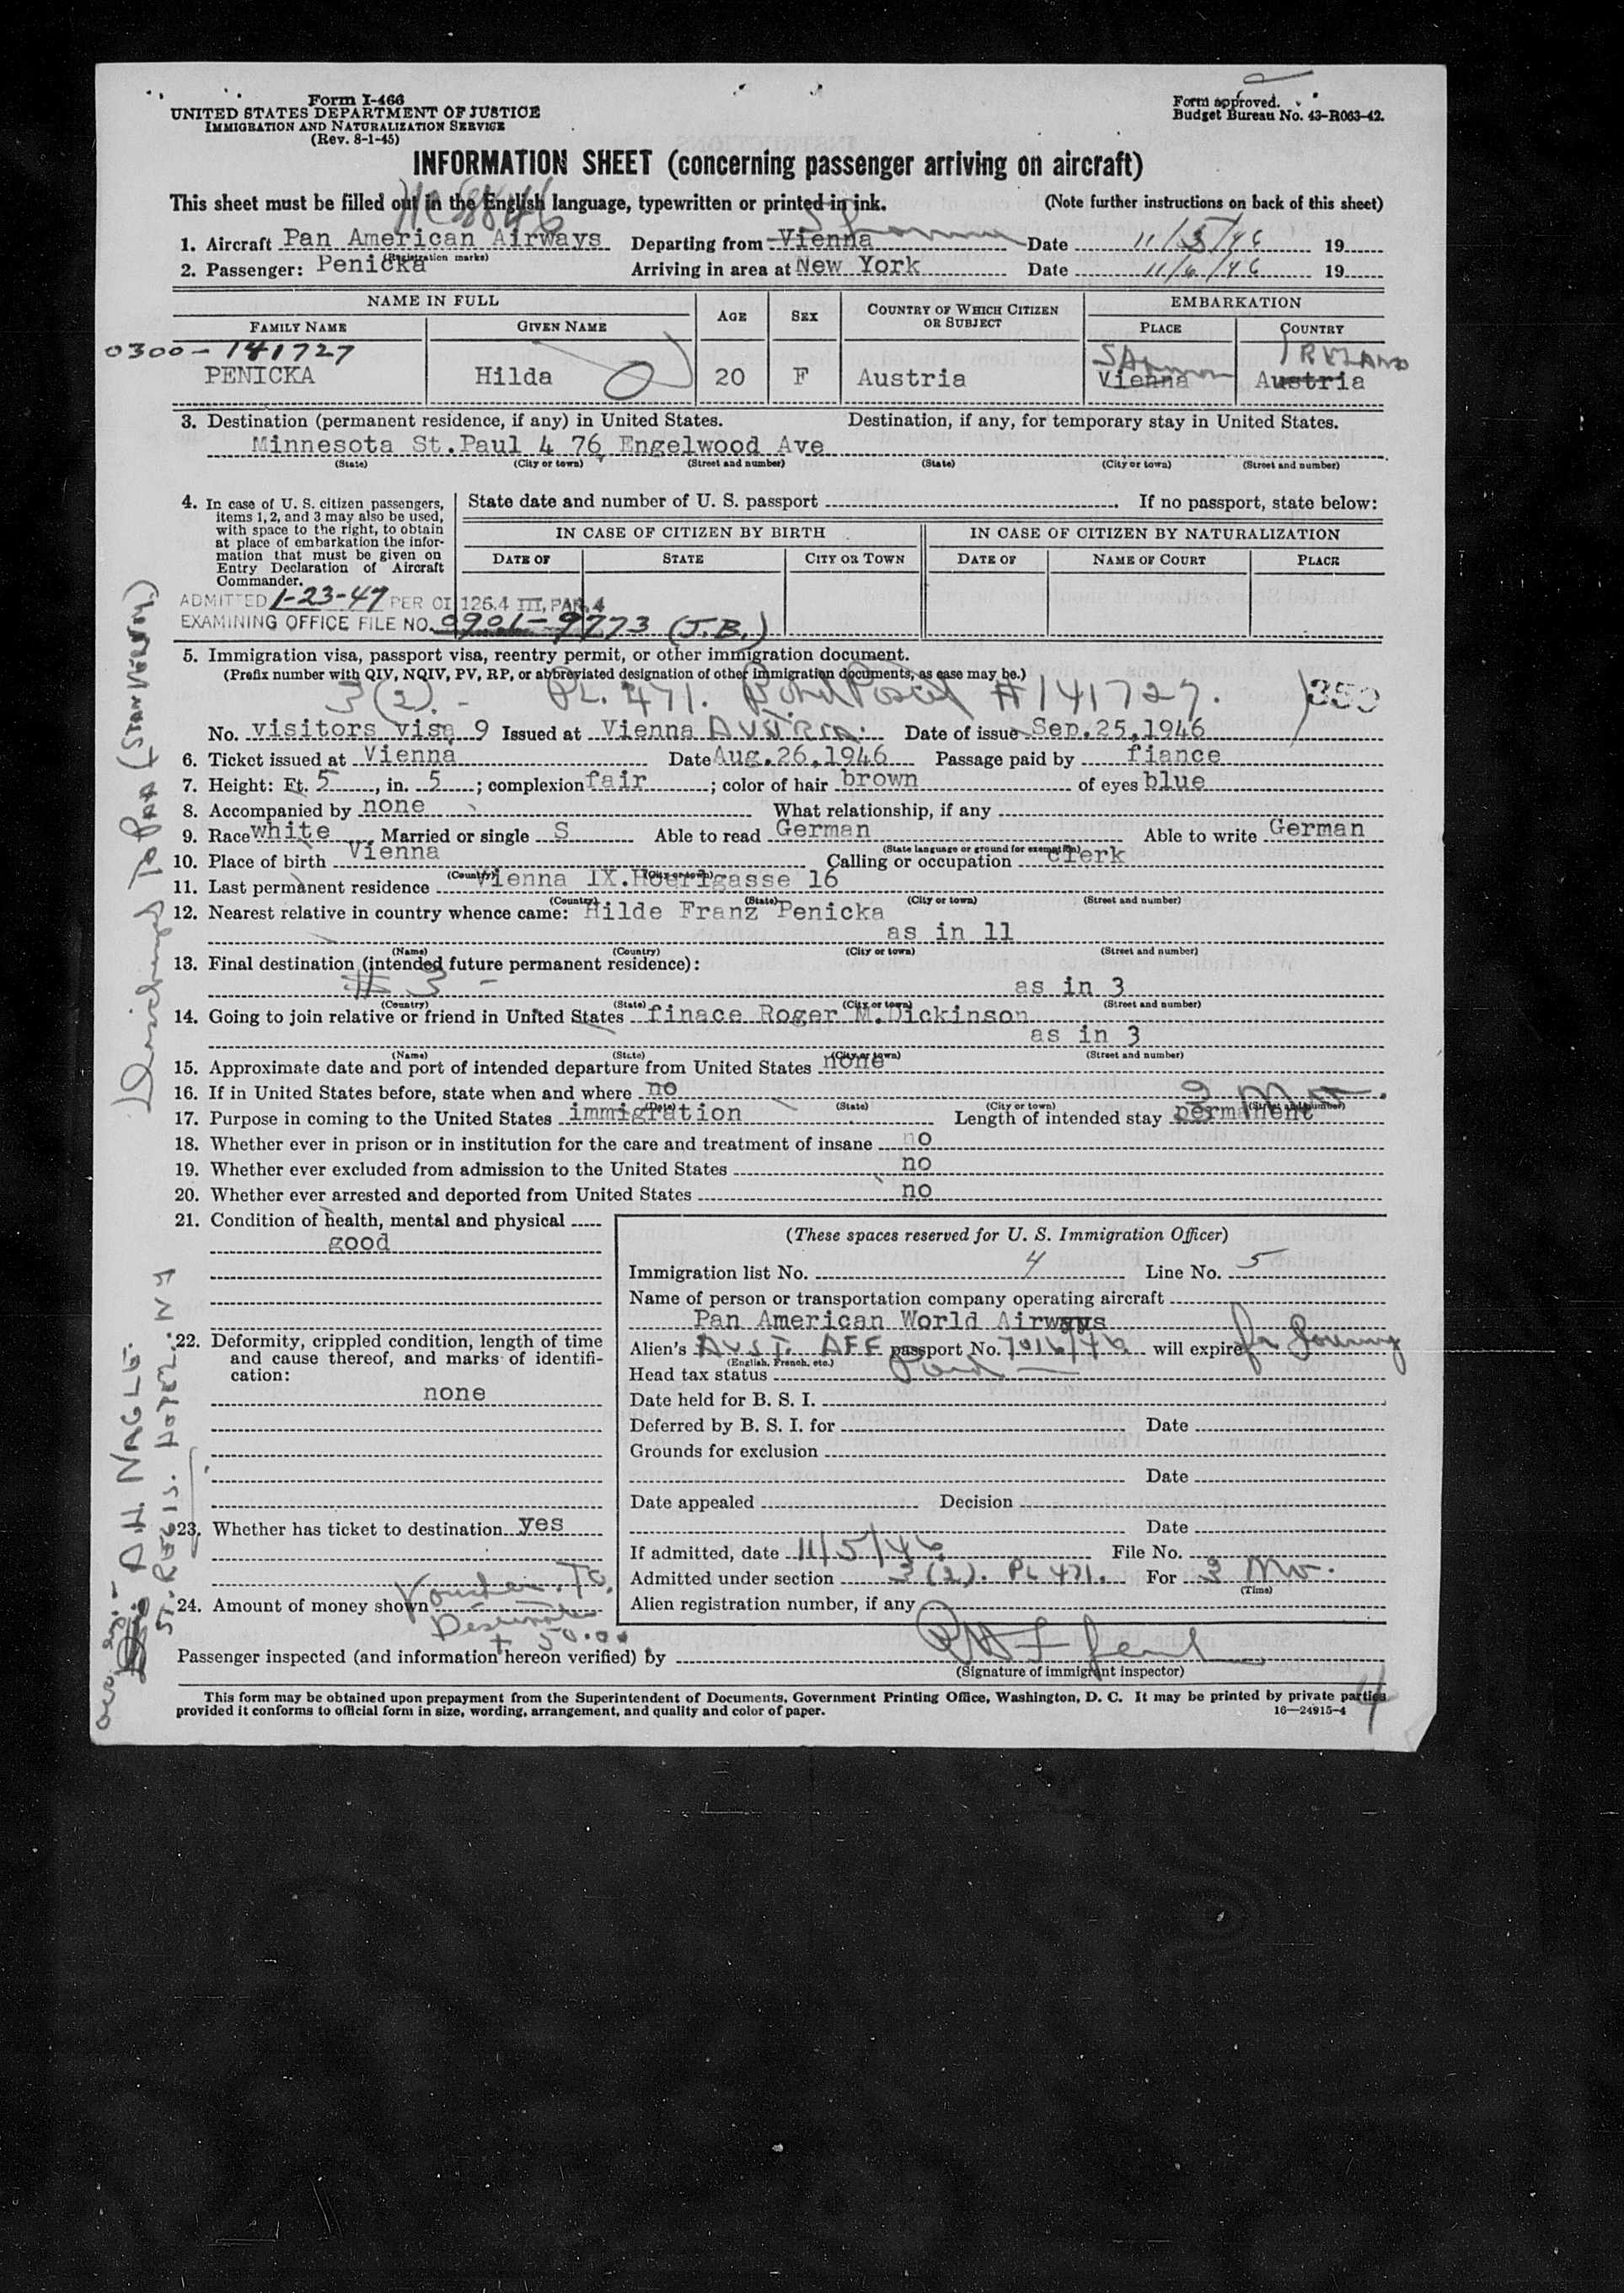 Form I-466
UNITED STATES DEPARTMENT OF JUSTICE
IMMIGRATION AND NATURALIZATION SERVICE
(Rev. 8-1-45)
Form approved.
Budget Bureau No. 43-R063-42.
INFORMATION SHEET (concerning passenger arriving on aircraft)
This sheet must be filled out in the English language, typewritten or printed in ink. (Note further instructions on back of this sheet)
1. Aircraft Pan American Airways Departing from Vienna Date 11/5/46 19
(Registration marks)
2. Passenger: Penicka Arriving in area at New York Date 11/6/46 19
NAME IN FULL AGE SEX COUNTRY OF WHICH CITIZEN OR SUBJECT EMBARKATION
FAMILY NAME GIVEN NAME PLACE COUNTRY
0300-141727 IRELAND
PENICKA Hilda 20 F Austria Vienna Austria
3. Destination (permanent residence, if any) in United States. Destination, if any, for temporary stay in United States.
Minnesota St.Paul 4 76 Engelwood Ave
(State) (City or town) (Street and number) (State) (City or town) (Street and number)
4. In case of U. S. citizen passengers, items 1, 2, and 3 may also be used, with space to the right, to obtain at place of embarkation the information that must be given on Entry Declaration of Aircraft Commander.
State date and number of U. S. passport If no passport, state below:
IN CASE OF CITIZEN BY BIRTH IN CASE OF CITIZEN BY NATURALIZATION
DATE OF STATE CITY OR TOWN DATE OF NAME OF COURT PLACE
ADMITTED 1-23-47 PER OI 126.4 III, PAR. 4
EXAMINING OFFICE FILE NO. 0901-9773 (J.B.)
5. Immigration visa, passport visa, reentry permit, or other immigration document.
(Prefix number with QIV, NQIV, PV, RP, or abbreviated designation of other immigration documents, as case may be.)
3(2). - PL. 471. #141727. 350
No. visitors visa 9 Issued at Vienna AUSTRIA. Date of issue Sep.25,1946
6. Ticket issued at Vienna Date Aug.26,1946 Passage paid by fiance
7. Height: Ft. 5, in. 5; complexion fair; color of hair brown of eyes blue
8. Accompanied by none What relationship, if any
9. Race white Married or single S Able to read German Able to write German
(State language or ground for exemption)
10. Place of birth Vienna Calling or occupation clerk
(Country) (City or town)
11. Last permanent residence Vienna IX.Hoerlgasse 16
(Country) (State) (City or town) (Street and number)
12. Nearest relative in country whence came: Hilde Franz Penicka
as in 11
(Name) (Country) (City or town) (Street and number)
13. Final destination (intended future permanent residence):
# 3 - as in 3
(Country) (State) (City or town) (Street and number)
14. Going to join relative or friend in United States finace Roger M.Dickinson
as in 3
(Name) (State) (City or town) (Street and number)
15. Approximate date and port of intended departure from United States none
16. If in United States before, state when and where no
(Date) (State) (City or town) (Street and number)
17. Purpose in coming to the United States immigration Length of intended stay permanent
18. Whether ever in prison or in institution for the care and treatment of insane no
19. Whether ever excluded from admission to the United States no
20. Whether ever arrested and deported from United States no
21. Condition of health, mental and physical
good
22. Deformity, crippled condition, length of time and cause thereof, and marks of identification:
none
23. Whether has ticket to destination yes
24. Amount of money shown Voucher. To. Destination + 50.00
(These spaces reserved for U. S. Immigration Officer)
Immigration list No. 4 Line No. 5
Name of person or transportation company operating aircraft
Pan American World Airways
Alien's AUST. AFF passport No. 7016/46 will expire
(English, French, etc.)
Head tax status Paid
Date held for B. S. I.
Deferred by B. S. I. for Date
Grounds for exclusion
Date
Date appealed Decision
Date
If admitted, date 11/5/46 File No.
Admitted under section 3(2). PL 471. For 3 Mo.
(Time)
Alien registration number, if any
Passenger inspected (and information hereon verified) by
(Signature of immigrant inspector)
This form may be obtained upon prepayment from the Superintendent of Documents, Government Printing Office, Washington, D. C. It may be printed by private parties
provided it conforms to official form in size, wording, arrangement, and quality and color of paper. 16—24915-4
4
Discharged To PAA
A.H. NAGLE.
ST. REGIS. HOTEL. N Y